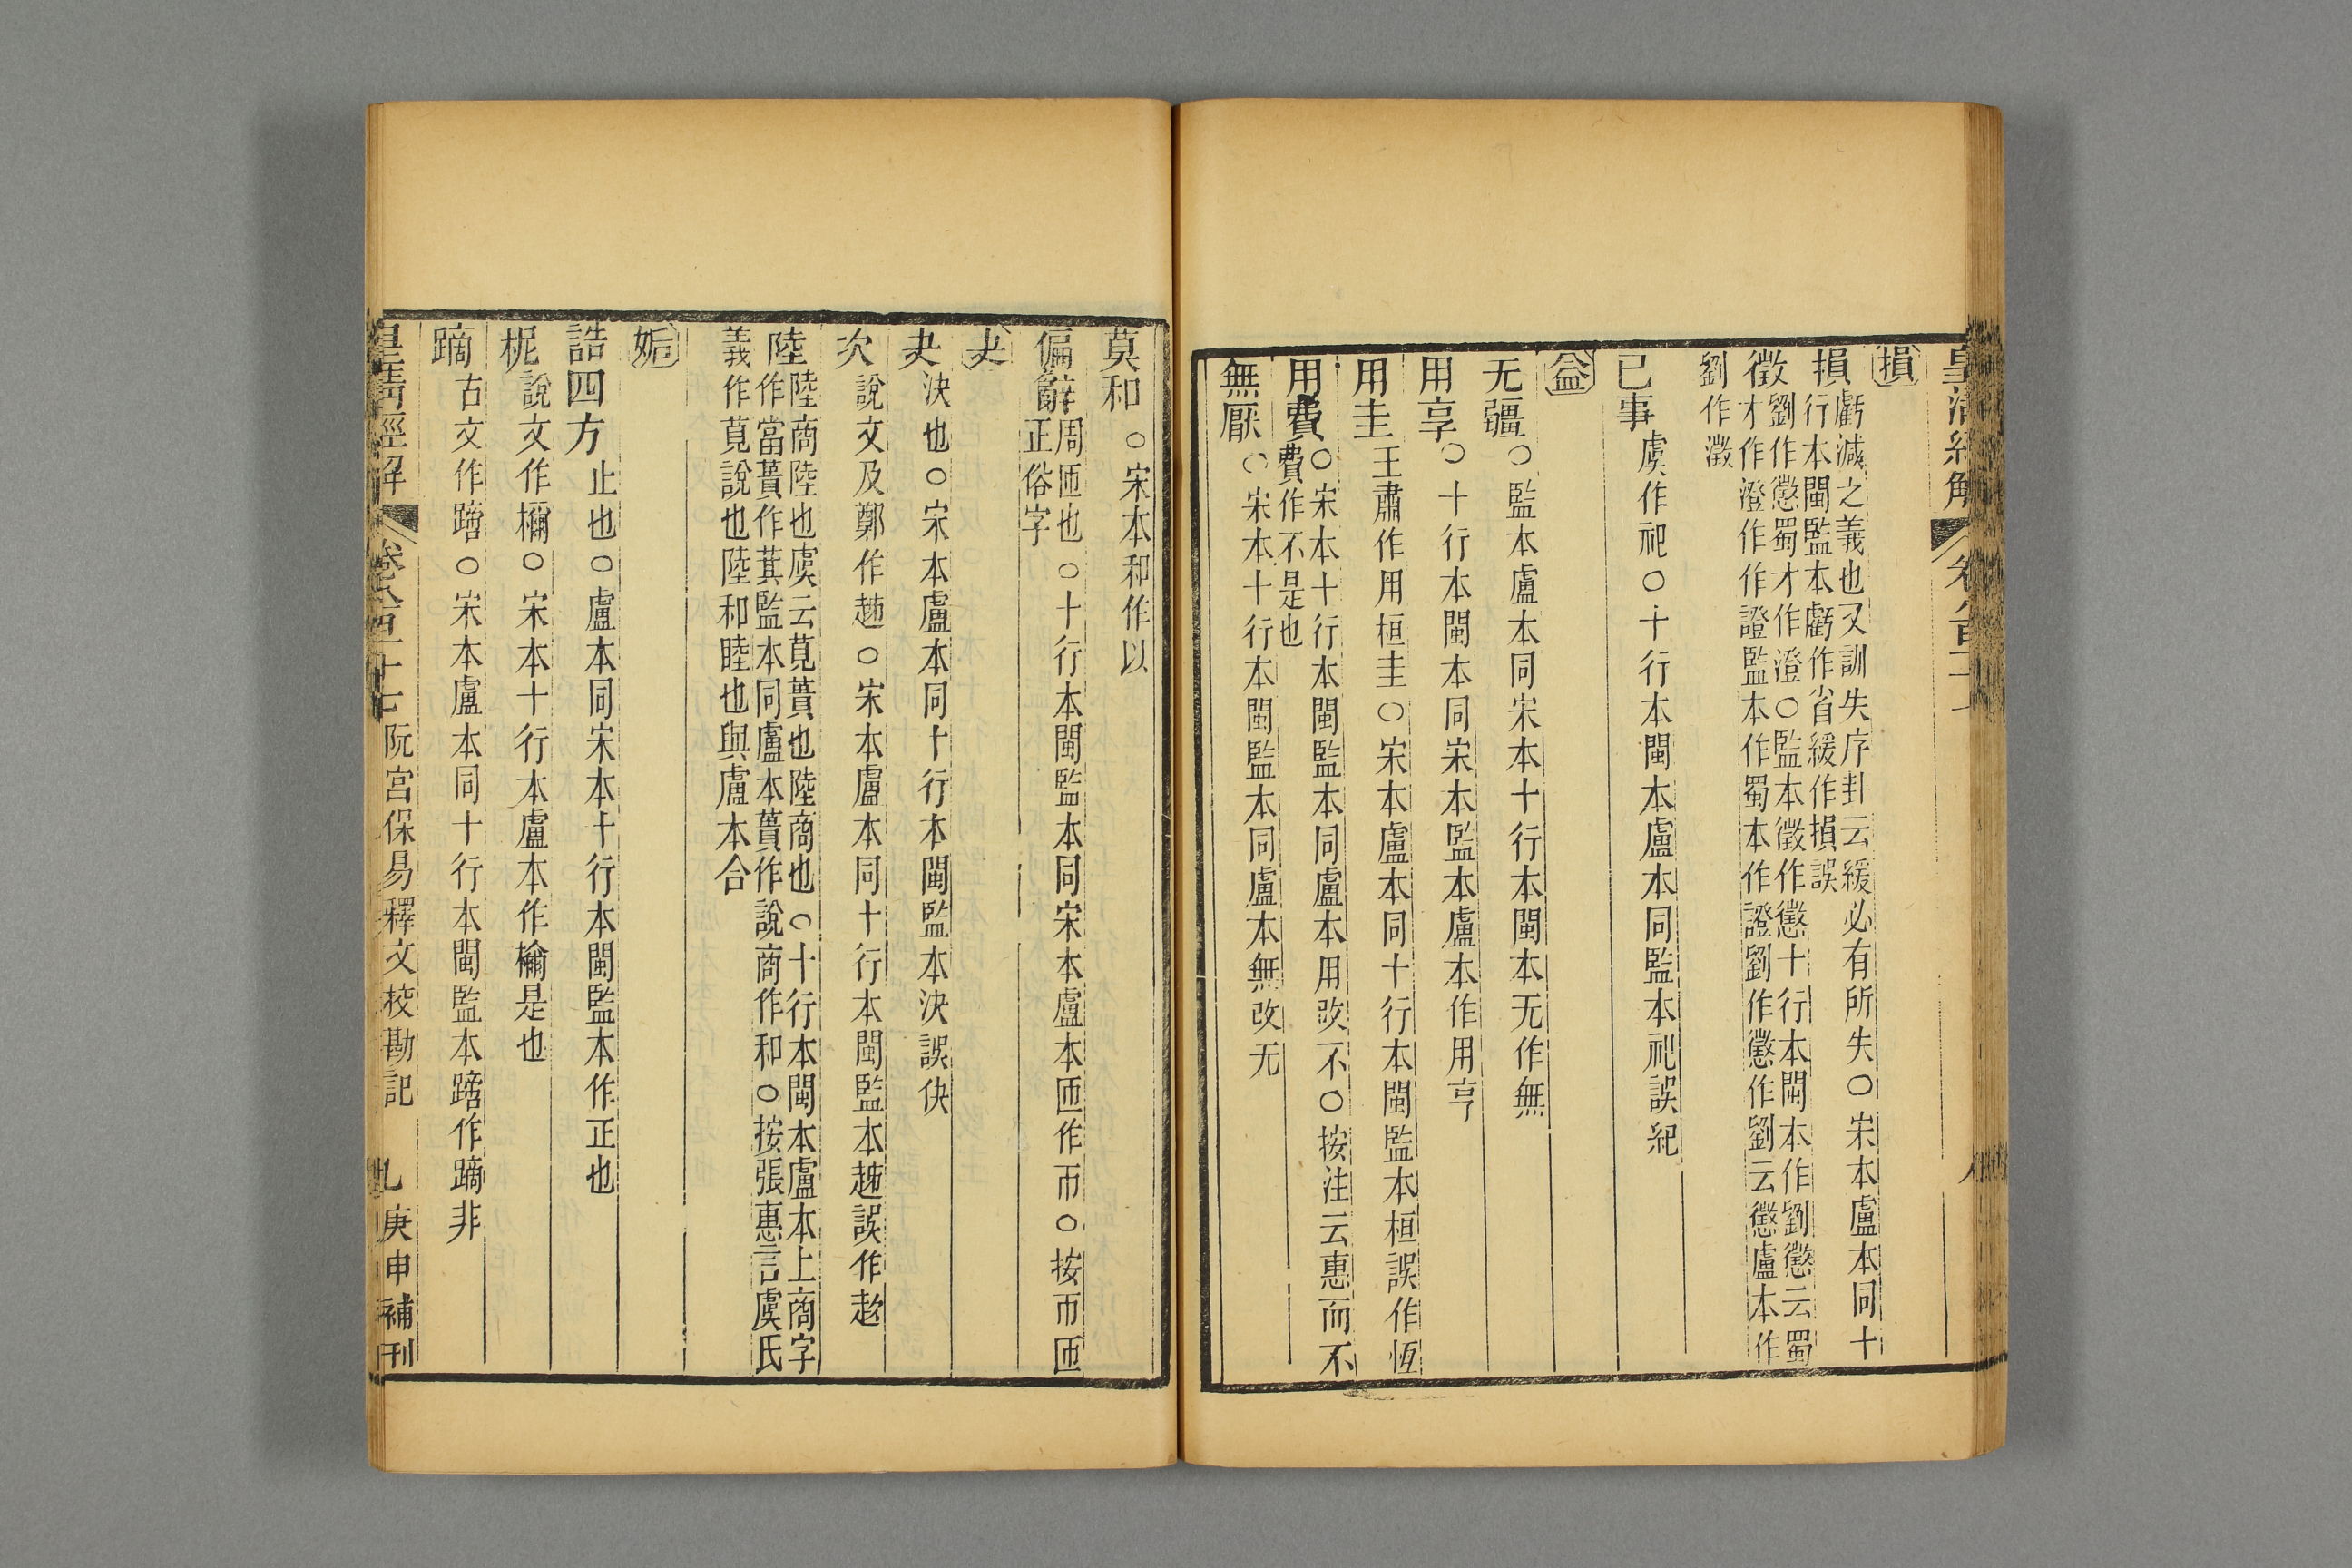 損
損虧減之義也又訓失序卦云緩必有所失○宋本盧本同十
行本閩監本虧作省緩作損誤
徵劉作懲蜀才作澄○監本徵作懲十行本閩本作劉懲云蜀
才作澄作作證監本作蜀本作證劉作懲作劉云懲盧本作
劉作澂
已事虞作祀○十行本閩本盧本同監本祀誤紀
益
无疆○監本盧本同宋本十行本閩本无作無
用享○十行本閩本同宋本監本盧本作用亨
用圭王肅作用桓圭○宋本盧本同十行本閩監本桓誤作恆
用費○宋本十行本閩監本同盧本用改不○按注云惠而不
費作不是也
無厭○宋本十行本閩監本同盧本無改无
莫和○宋本和作以
偏辭周匝也○十行本閩監本同宋本盧本匝作帀○按帀匝
正俗字
夬
夬決也○宋本盧本同十行本閩監本決誤佚
次說文及鄭作趀○宋本盧本同十行本閩監本趀誤作趑
陸陸商陸也虞云莧蕢也陸商也○十行本閩本盧本上商字
作當蕢作萁監本同盧本蕢作說商作和○按張惠言虞氏
義作莧說也陸和睦也與盧本合
姤
誥四方止也○盧本同宋本十行本閩監本作正也
柅說文作檷○宋本十行本盧本作檷是也
蹢古文作䠱○宋本盧本同十行本閩監本䠱作蹢非
皇清經解 卷八百二十七 阮宮保易釋文校勘記 九 庚申補刊